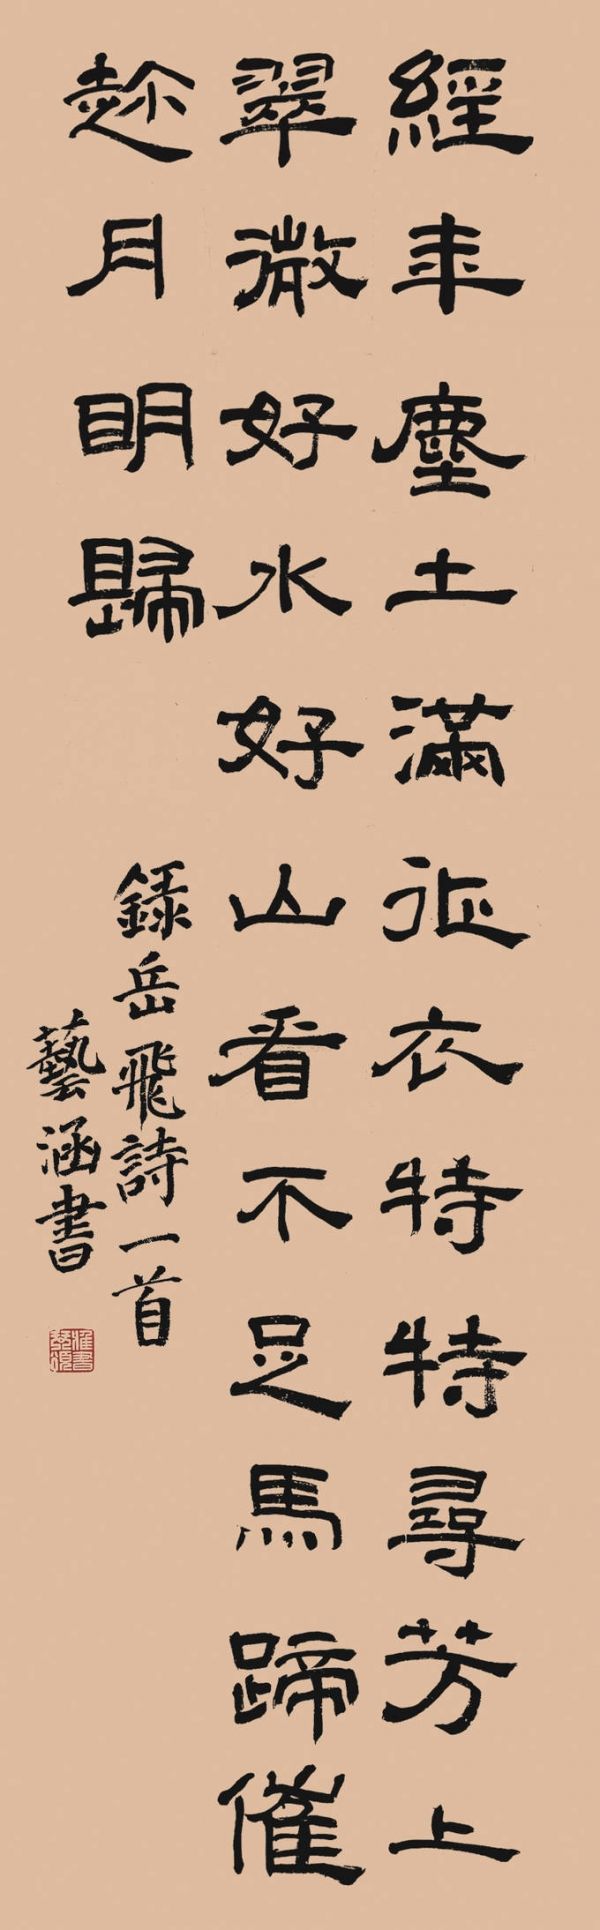 經年塵土滿征衣特特尋芳上
翠微好水好山看不足馬蹄催
趂月明歸
録岳飛詩一首
藝涵書